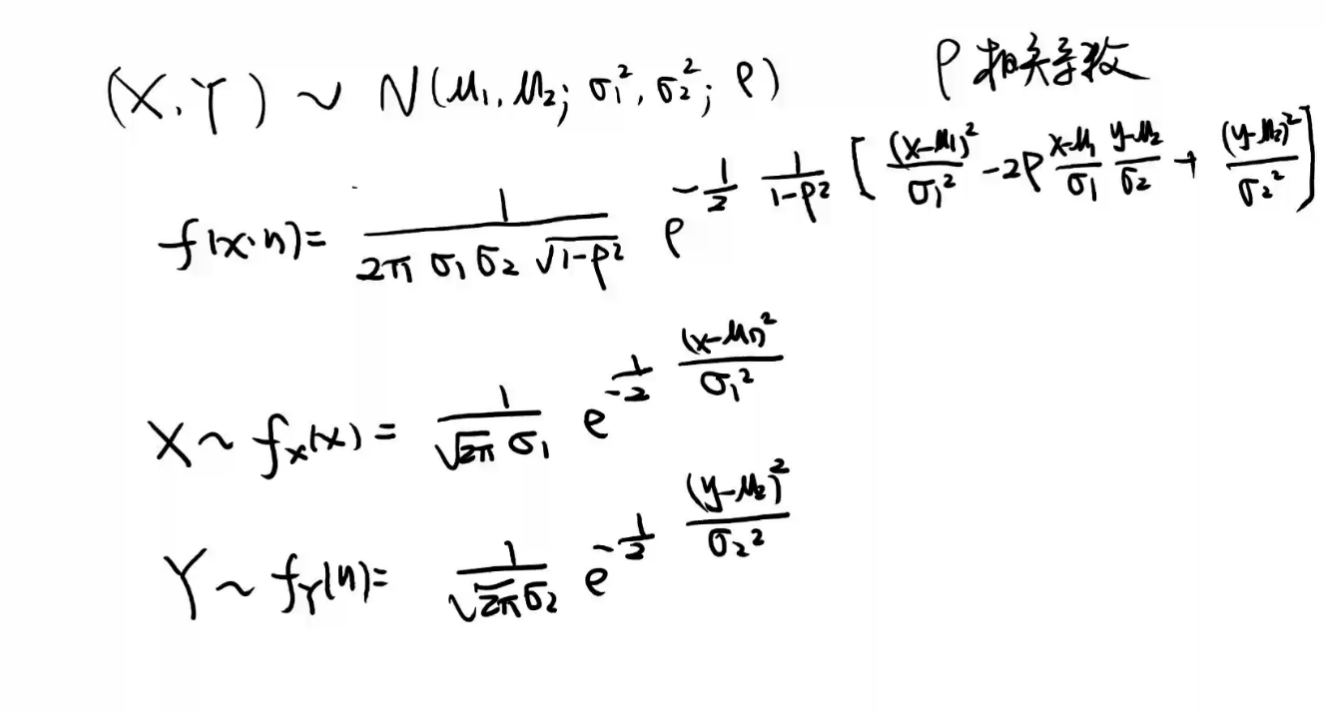 (X, Y) ~ N(μ₁, μ₂; σ₁², σ₂²; ρ) ρ 相关系数
f(x·y) = \frac{1}{2π σ₁ σ₂ \sqrt{1-ρ²}} e^{-\frac{1}{2} \frac{1}{1-ρ²} [\frac{(x-μ₁)²}{σ₁²} - 2ρ \frac{x-μ₁}{σ₁} \frac{y-μ₂}{σ₂} + \frac{(y-μ₂)²}{σ₂²}]}
X ~ f_X(x) = \frac{1}{\sqrt{2π} σ₁} e^{-\frac{1}{2} \frac{(x-μ₁)²}{σ₁²}}
Y ~ f_Y(y) = \frac{1}{\sqrt{2π} σ₂} e^{-\frac{1}{2} \frac{(y-μ₂)²}{σ₂²}}